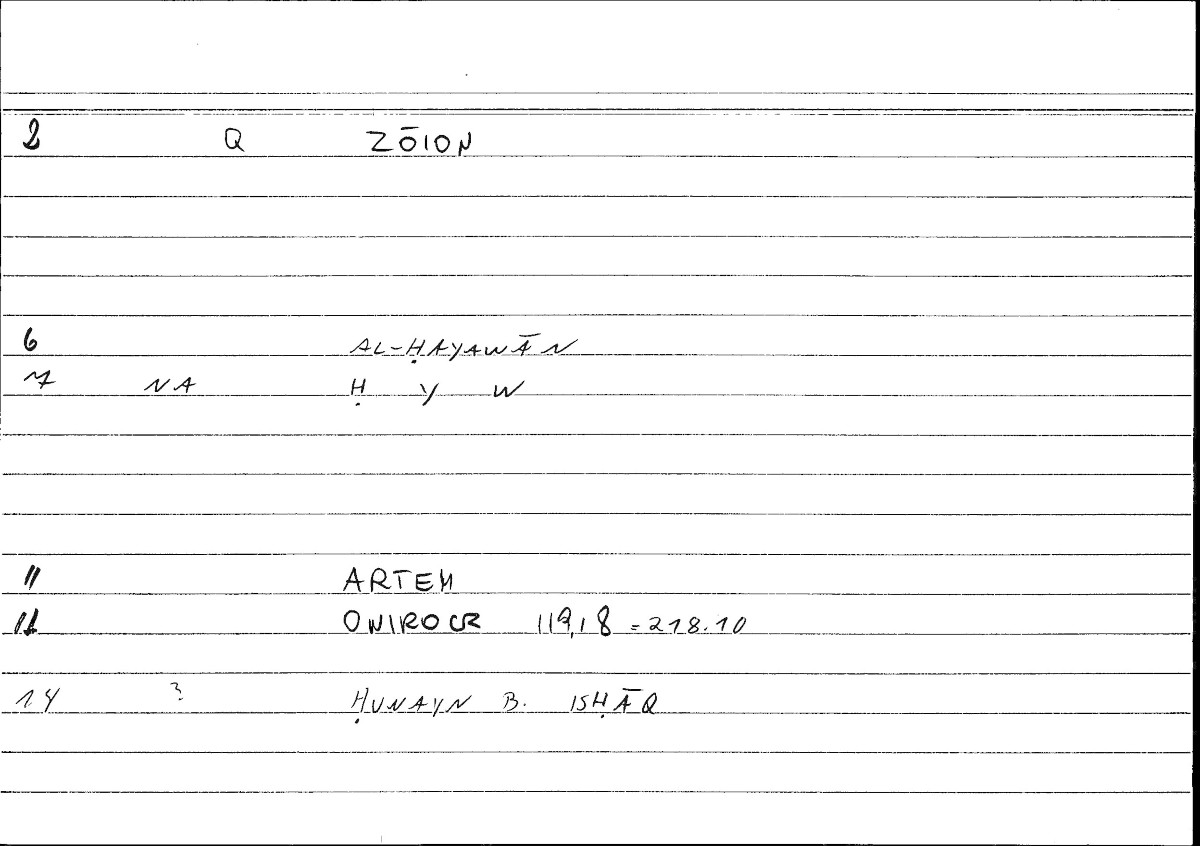 2 Q ZŌION
6 AL-ḤAYAWĀN
7 NA Ḥ Y W
11 ARTEM
12 ONIROCR 119,18 = 218.10
14 ? ḤUNAYN B. ISḤĀQ